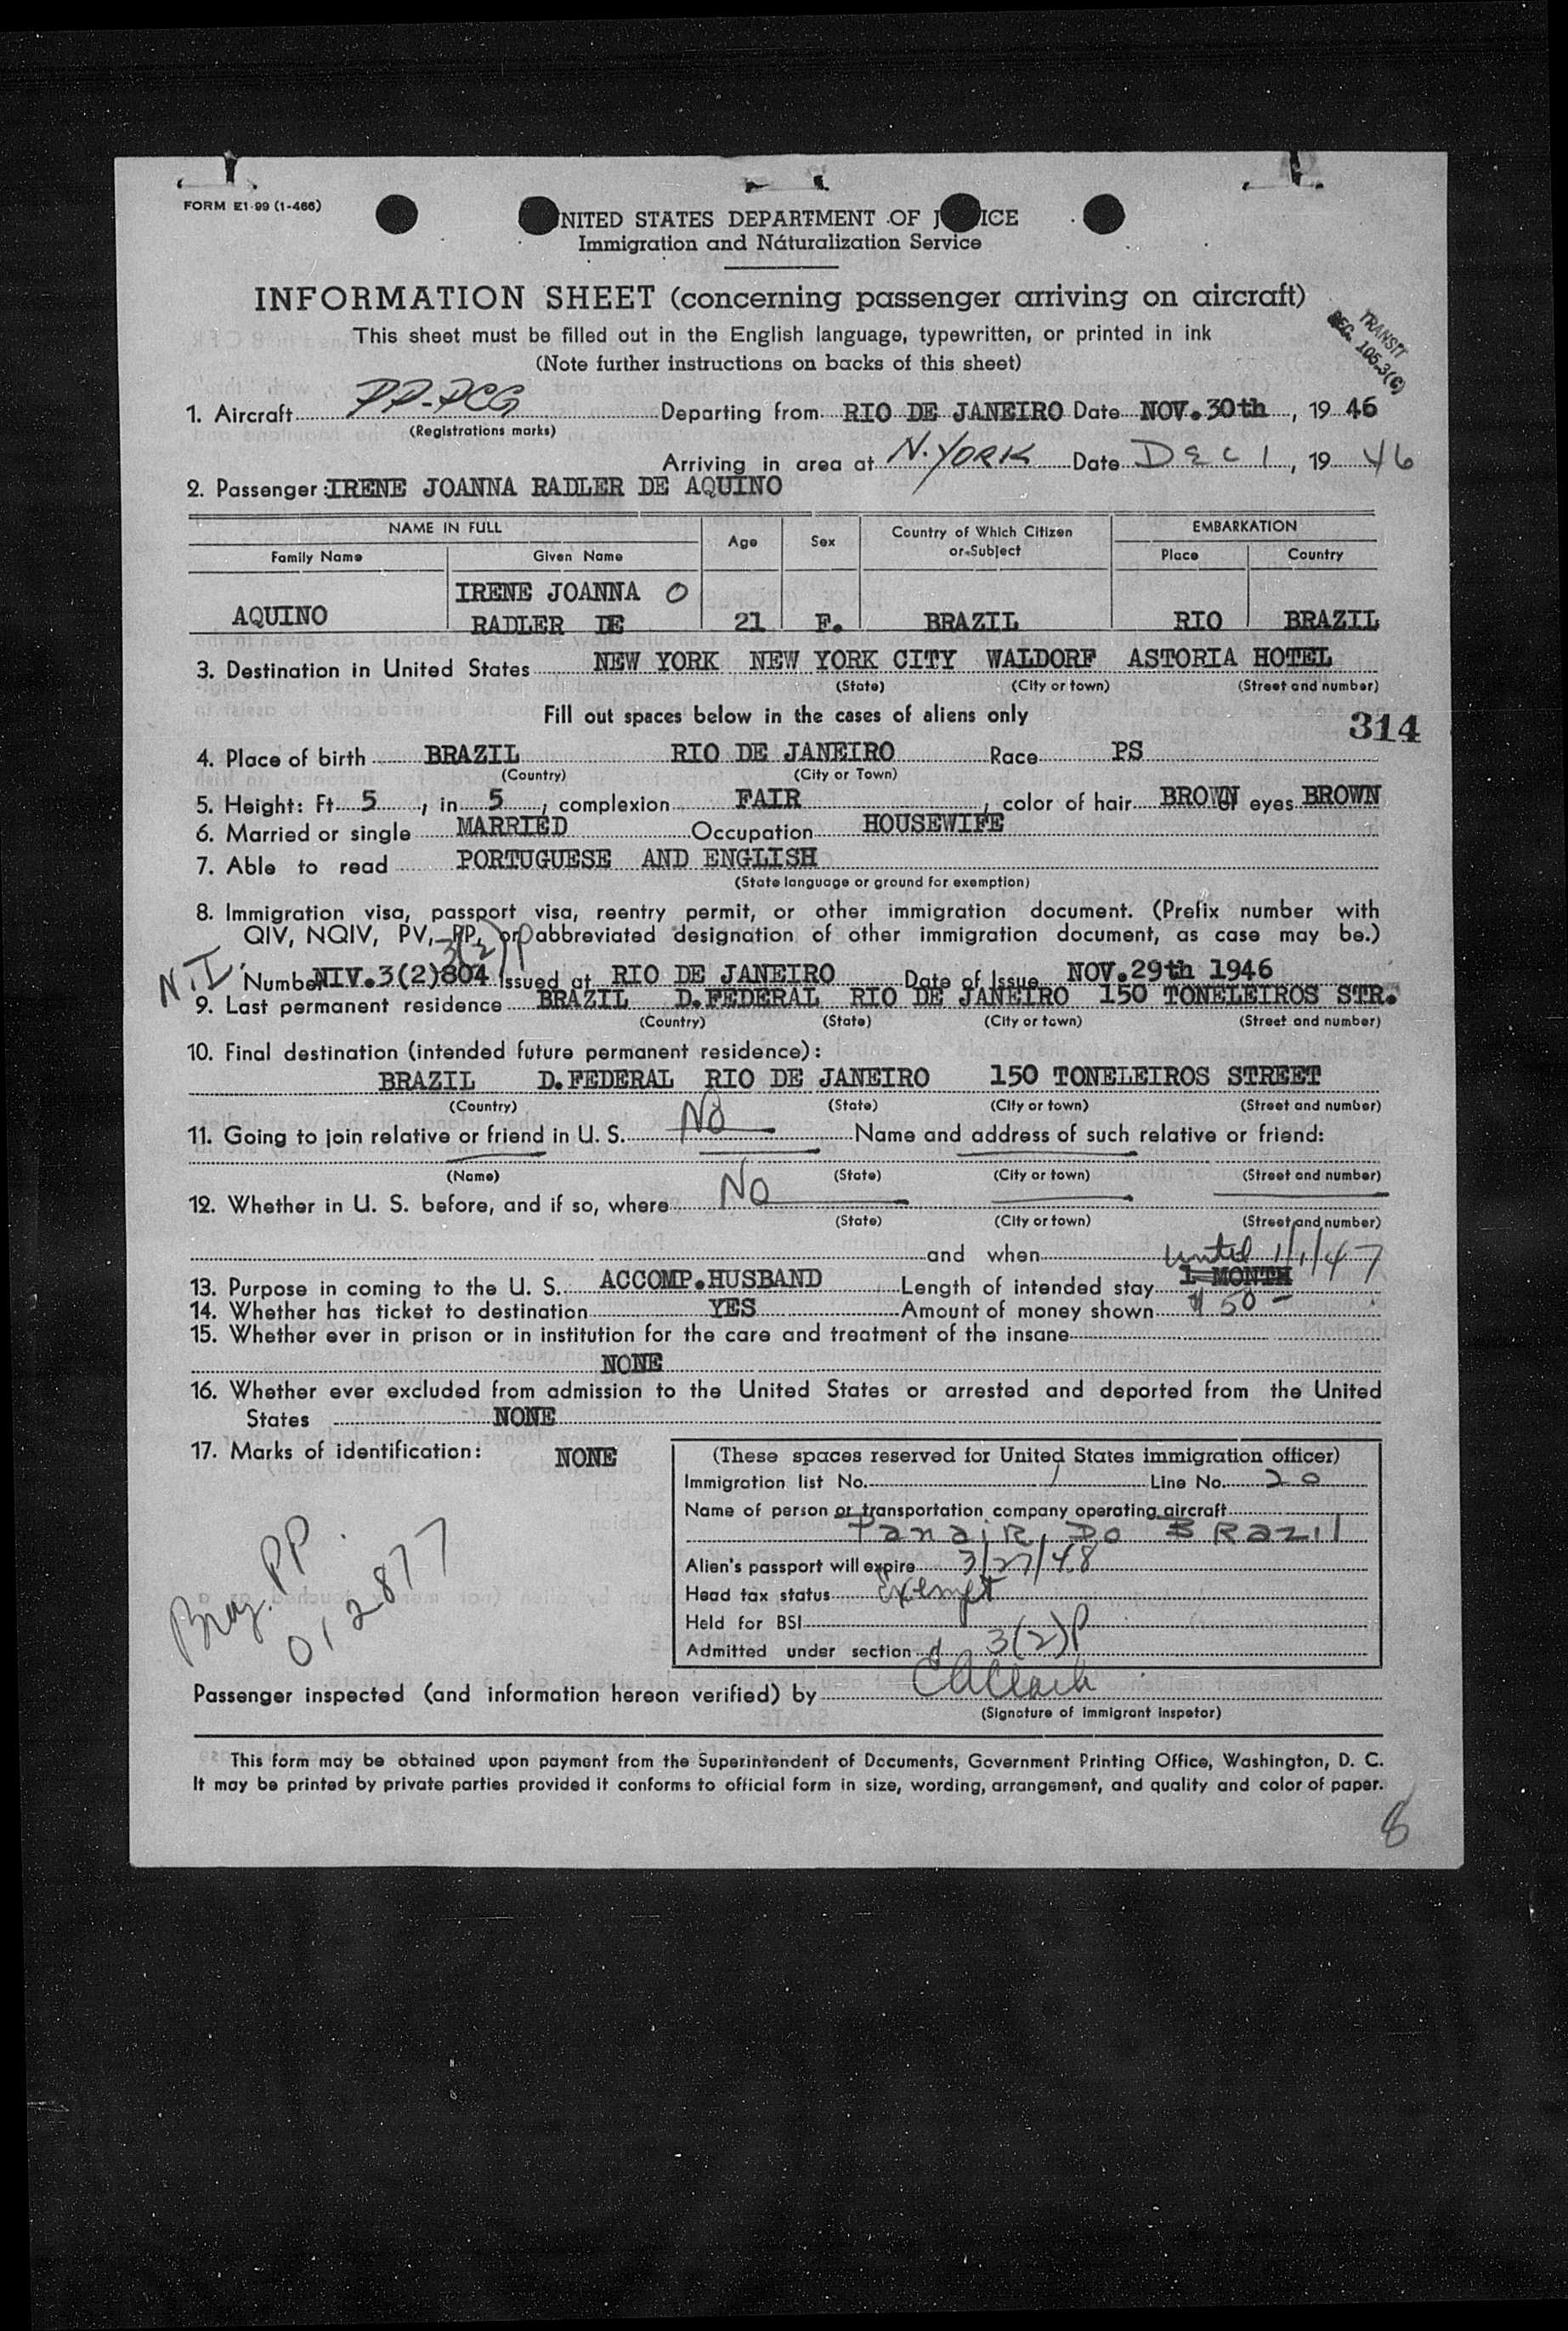 FORM E1-99 (1-466)
UNITED STATES DEPARTMENT OF J ICE
Immigration and Naturalization Service
INFORMATION SHEET (concerning passenger arriving on aircraft)
TRANSIT
REG. 105.3(C)
This sheet must be filled out in the English language, typewritten, or printed in ink
(Note further instructions on backs of this sheet)
1. Aircraft PP-PCG Departing from RIO DE JANEIRO Date NOV.30th, 19 46
(Registrations marks)
Arriving in area at N. YORK Date DEC 1, 19 46
2. Passenger: IRENE JOANNA RADLER DE AQUINO
NAME IN FULL Age Sex Country of Which Citizen or Subject EMBARKATION
Family Name Given Name Place Country
IRENE JOANNA O
AQUINO RADLER DE 21 F. BRAZIL RIO BRAZIL
3. Destination in United States NEW YORK NEW YORK CITY WALDORF ASTORIA HOTEL
(State) (City or town) (Street and number)
Fill out spaces below in the cases of aliens only
314
4. Place of birth BRAZIL RIO DE JANEIRO Race PS
(Country) (City or Town)
5. Height: Ft. 5, in 5, complexion FAIR, color of hair BROWN eyes BROWN
6. Married or single MARRIED Occupation HOUSEWIFE
7. Able to read PORTUGUESE AND ENGLISH
(State language or ground for exemption)
8. Immigration visa, passport visa, reentry permit, or other immigration document. (Prefix number with
QIV, NQIV, PV, PP, or abbreviated designation of other immigration document, as case may be.)
3(2)P
N.I. Number NIV.3(2)804 Issued at RIO DE JANEIRO Date of Issue NOV.29th 1946
9. Last permanent residence BRAZIL D.FEDERAL RIO DE JANEIRO 150 TONELEIROS STR.
(Country) (State) (City or town) (Street and number)
10. Final destination (intended future permanent residence):
BRAZIL D.FEDERAL RIO DE JANEIRO 150 TONELEIROS STREET
(Country) (State) (City or town) (Street and number)
11. Going to join relative or friend in U. S. No Name and address of such relative or friend:
(Name) (State) (City or town) (Street and number)
12. Whether in U. S. before, and if so, where No
(State) (City or town) (Street and number)
and when until 1/1/47
13. Purpose in coming to the U. S. ACCOMP.HUSBAND Length of intended stay 1 MONTH
14. Whether has ticket to destination YES Amount of money shown $ 50 -
15. Whether ever in prison or in institution for the care and treatment of the insane
NONE
16. Whether ever excluded from admission to the United States or arrested and deported from the United
States NONE
17. Marks of identification: NONE
(These spaces reserved for United States immigration officer)
Immigration list No. 1 Line No. 20
Name of person or transportation company operating aircraft
Panair Do BRazil
Alien's passport will expire 3/27/48
Head tax status Exempt
Held for BSI
Admitted under section 3(2)P
Braz. PP.
012877
Passenger inspected (and information hereon verified) by
(Signature of immigrant inspetor)
This form may be obtained upon payment from the Superintendent of Documents, Government Printing Office, Washington, D. C.
It may be printed by private parties provided it conforms to official form in size, wording, arrangement, and quality and color of paper.
8